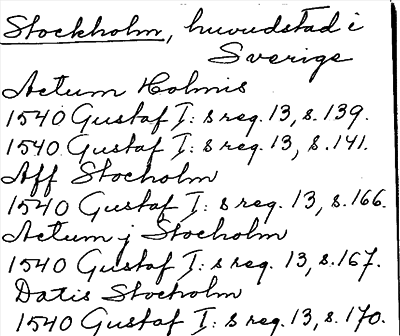 Stockholm, huvudstad i
Sverige
Actum Holmis
1540 Gustaf I: s reg. 13, s. 139.
1540 Gustaf I: s reg. 13, s. 141.
Aff Stocholm
1540 Gustaf I: s reg. 13, s. 166.
Actum j Stocholm
1540 Gustaf I: s reg. 13, s. 167.
Datis Stocholm
1540 Gustaf I: s reg. 13, s. 170.